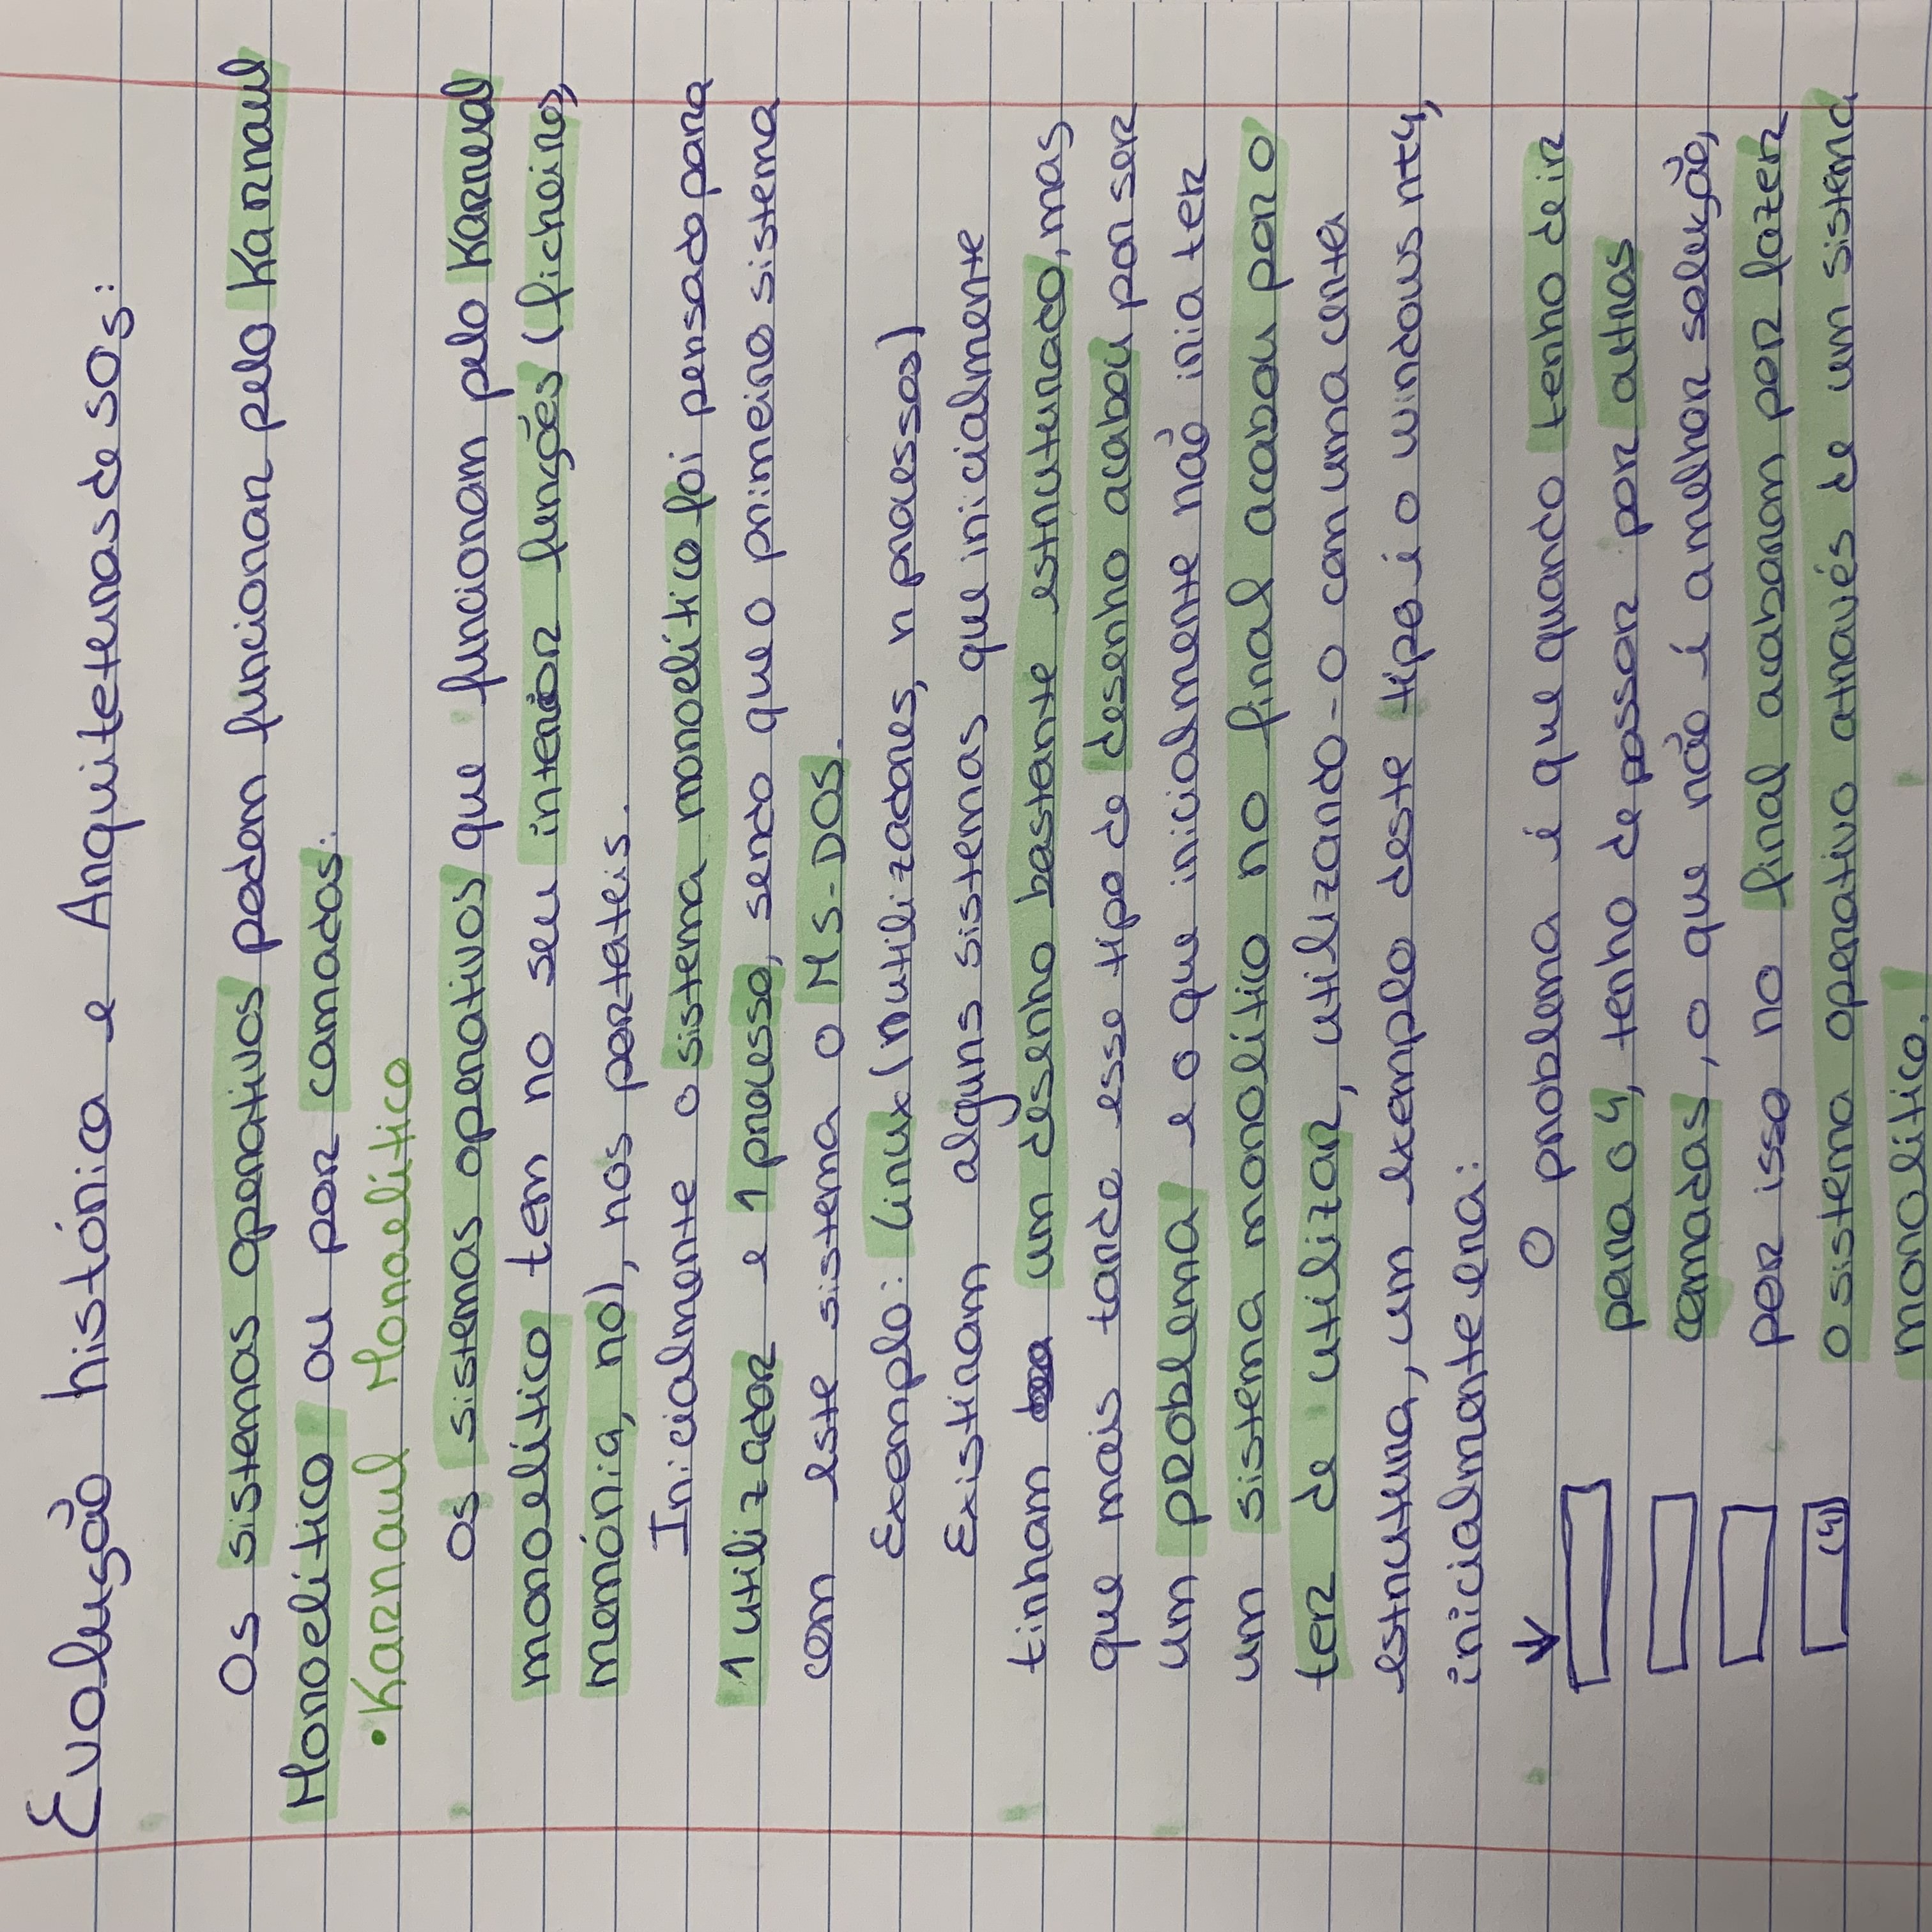 Evolução histórica e Arquiteturas de SOs:
Os sistemas operativos podem funcionar pelo Karnaul
Monoelítico ou por camadas:
• Karnaul Monoelítico
Os sistemas operativos que funcionam pelo Karneual
monoelítico tem no seu interior funções (ficheiros,
memória, no), nos portateis.
Inicialmente o sistema monoelítico foi pensado para
1 utilizador e 1 processo, sendo que o primeiro sistema
com este sistema o MS-DOS.
Exemplo: Linux (n utilizadores, n processos)
Existiram alguns sistemas que inicialmente
tinham um desenho bastante estruturado, mas
que mais tarde esse tipo de desenho acabou por ser
um problema e o que inicialmente não iria ter
um sistema monolítico no final acabou por o
ter de utilizar, utilizando-o com uma certa
estrutura, um exemplo deste tipo é o windows nt4,
inicialmente era:
O problema é que quando tenho de ir
para o 4, tenho de passar por outras
camadas, o que não é a melhor solução,
por isso no final acabaram por fazer
(4)
o sistema operativo através de um sistema
monolítico.